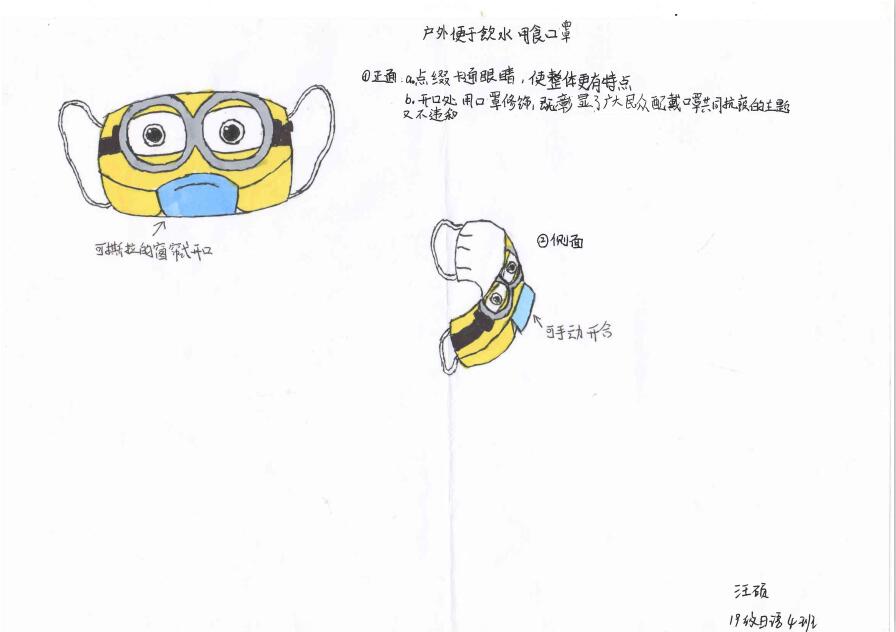 户外便于饮水用食口罩
①正面.a.点缀卡通眼睛，使整体更有特点
b.开口处用口罩修饰，既彰显了广大民众配戴口罩共同抗疫的主题
又不违和
可撕拉的窗帘式开口
②侧面
可手动开合
汪硕
19级日语4班